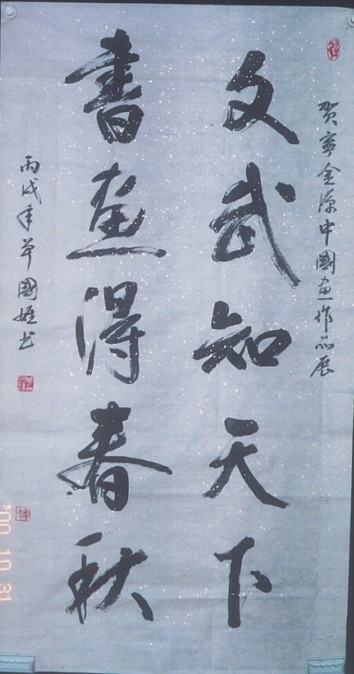 贺金源中國画作品展
文武知天下
書画得春秋
丙戌年國书
'00 10 31